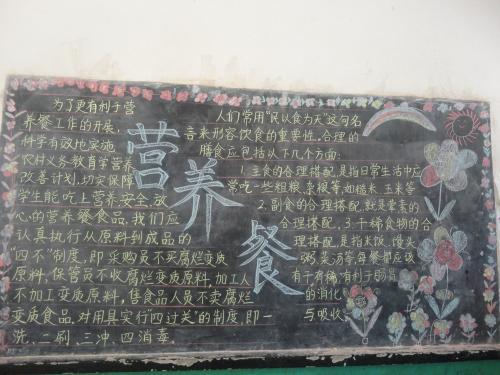 为了更有利于营
养餐工作的开展,
科学有效地实施
农村义务教育学营养
改善计划,切实保障
学生能吃上营养、安全、放
心的营养餐食品,我们应
认真执行从原料到成品的
“四不”制度,即采购员不买腐烂变质
原料,保管员不收腐烂变质原料,加工人
不加工变质原料,售食品人员不卖腐烂
变质食品.对用具实行“四过关”的制度,即一
洗、二刷、三冲、四消毒。
营养餐
人们常用“民以食为天”这句名
言来形容饮食的重要性,合理的
膳食应包括以下几个方面:
1.主食的合理搭配,是指日常生活中应
常吃一些粗粮、杂粮等如糙米、玉米等
2.副食的合理搭配,就是荤素的
合理搭配,3.干稀食物的合
理搭配,是指米饭、馒头
粥、菜汤等每餐都应该
有干有稀,有利于肠胃
的消化
与吸收